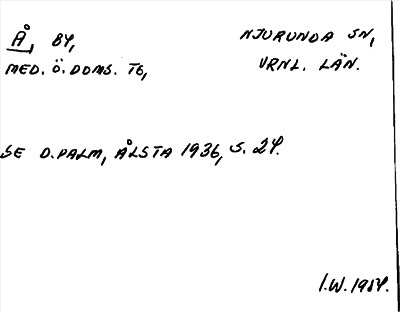 Å, 84, NJURUNDA SN,
MED. Ö. DOMS. TG, VRNL. LÄN.
SE D. PALM, ÅLSTA 1936, S. 24.
I.W. 1984.